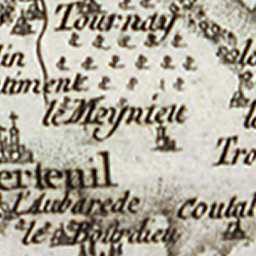 Tournay
lin
timent
le Meynieu
Tro
erteuil
l'Aubarede
Coutal
le Bourdieu